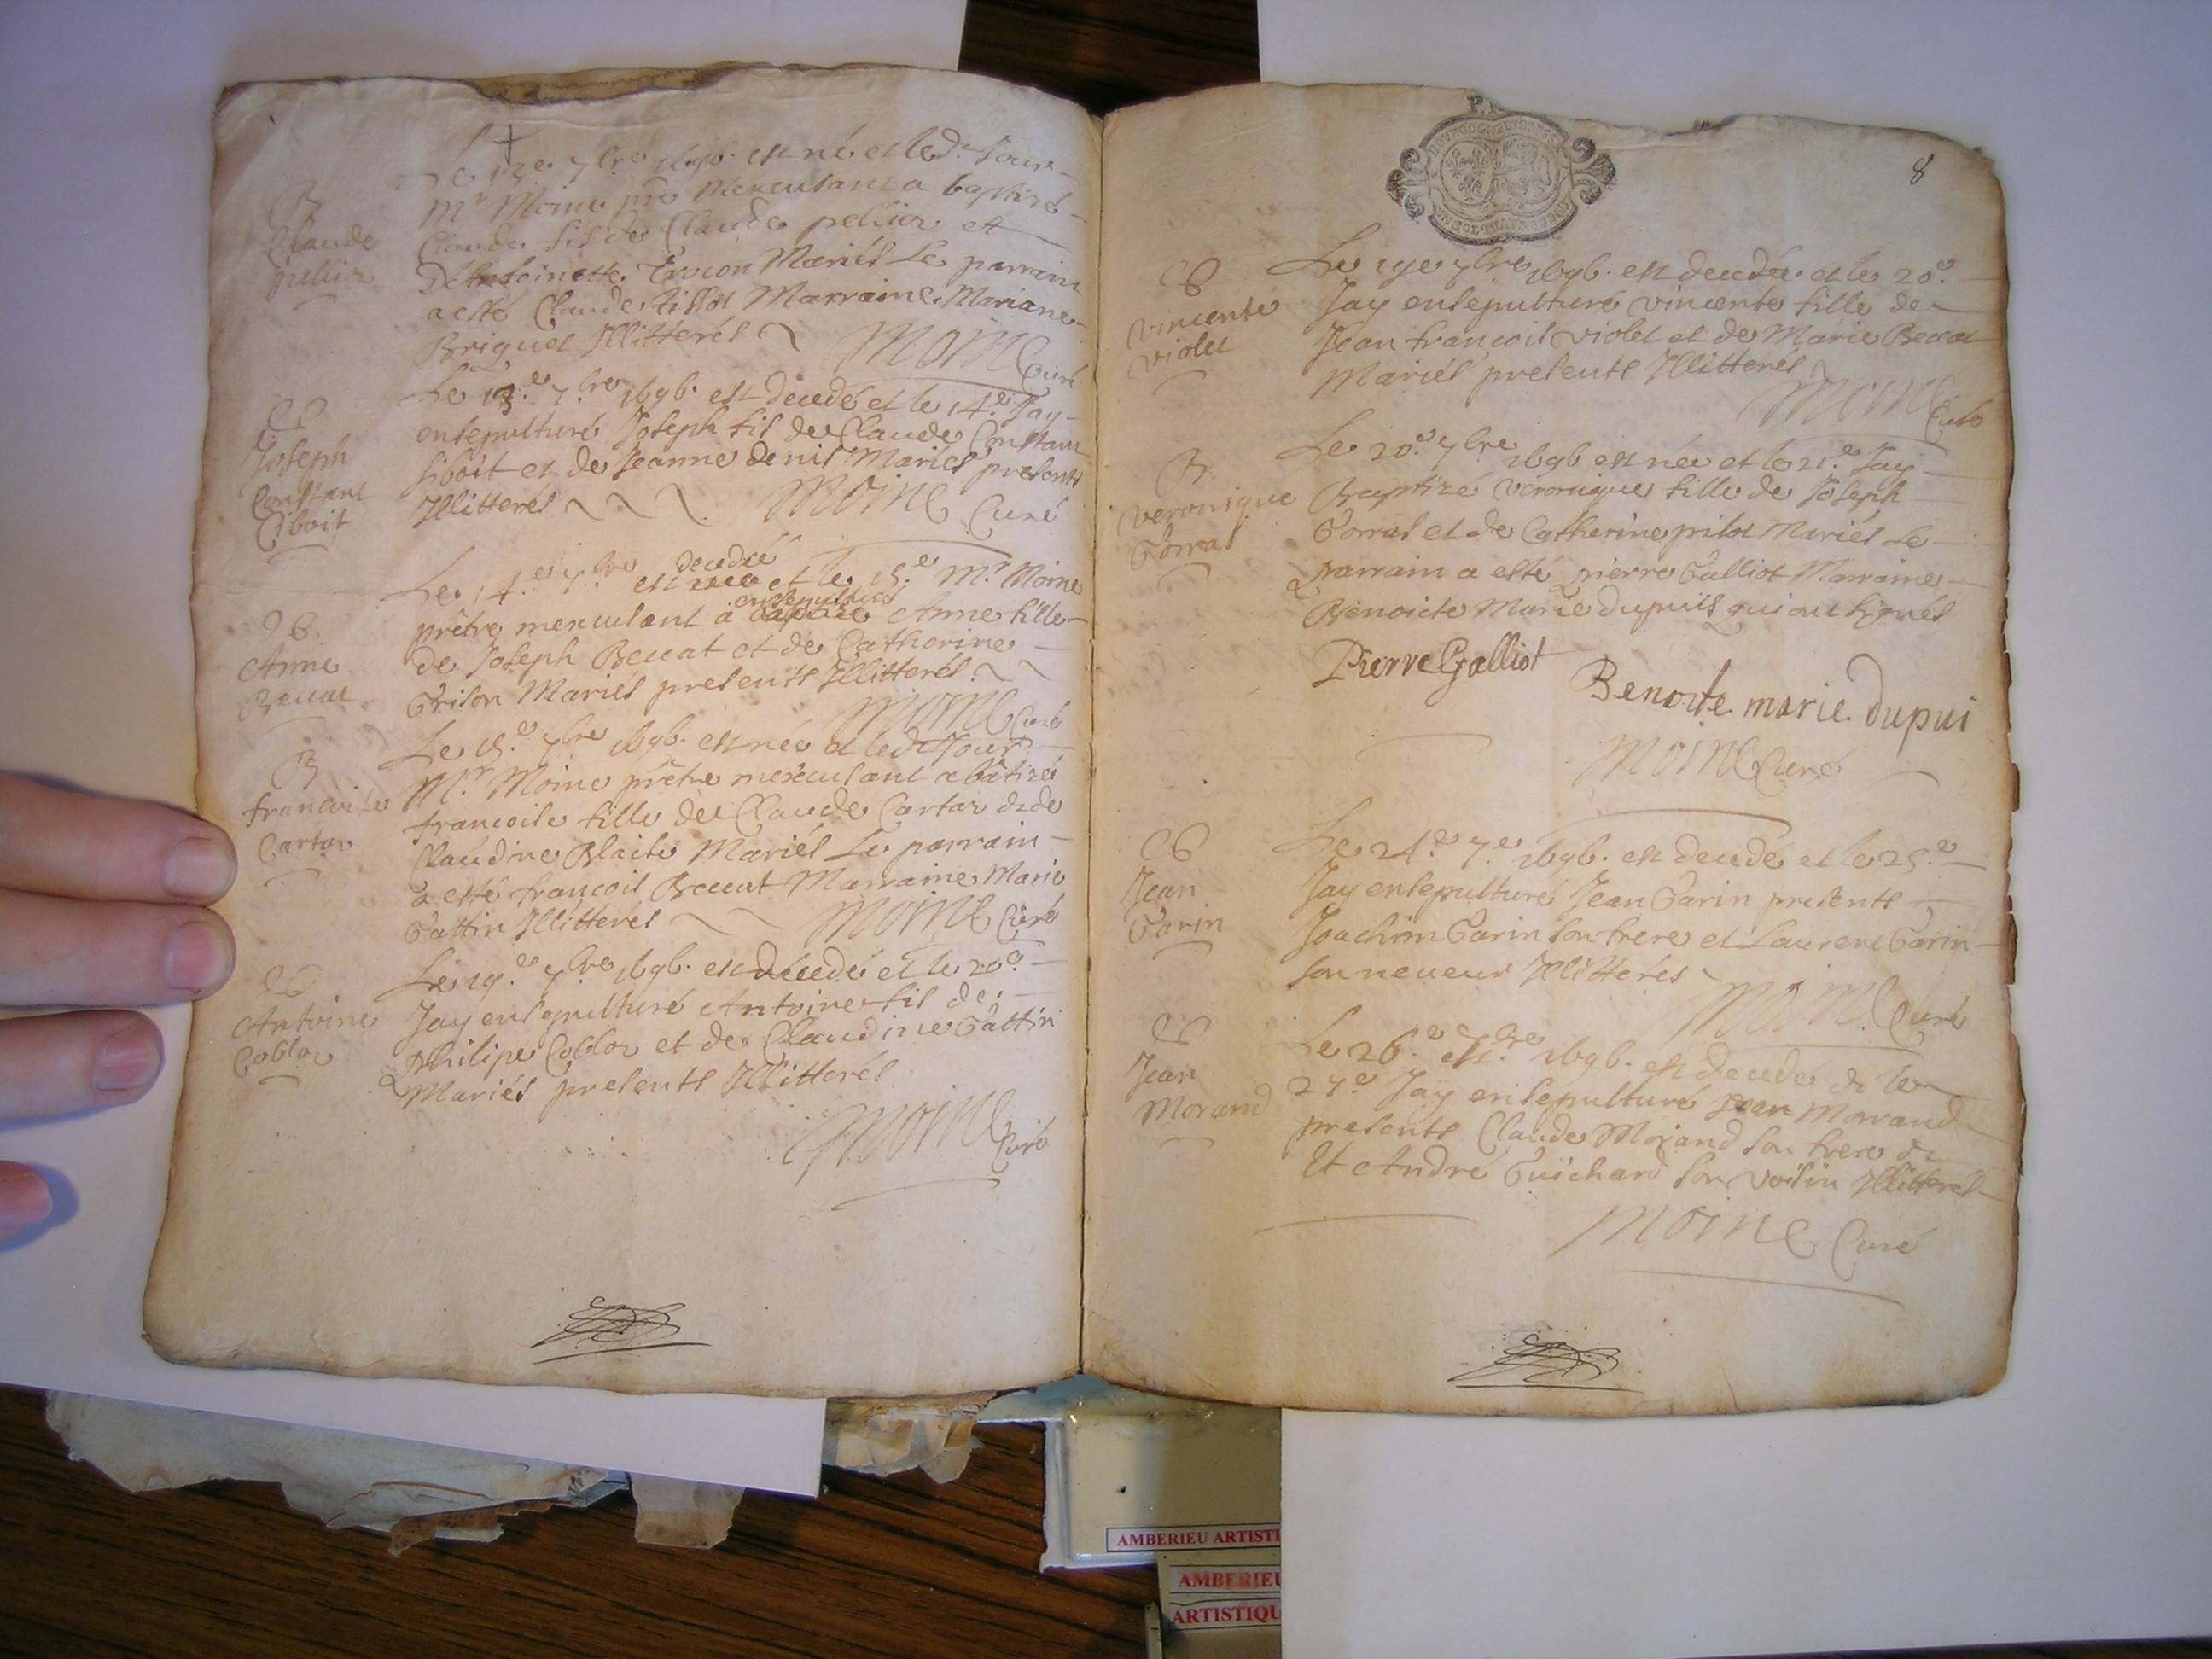 Le 13e 7bre 1696. est né et led. Jour
Mr Moine pre Mexculant a baptisé
Claude fils de Claude pellier et
Mariés Le parrain
a esté Claude tissot Marraine Mariane
Briguet Illitterés
Moine Curé
B
Claude
pellier
Le 13.e 7.bre 1696. est décedé et le 14.e Jay
ensepulturé Joseph fils de Claude Constant
siboit et de Jeanne denis Mariés presents
Illitterés Moine Curé
Joseph
Constant
Ciboit
Le 14.e 7.bre est decedée et le 15.e Mr. Moine
prêtre mexculant a ensepulturé Anne fille
de Joseph Beccat et de Catherine
Grison Mariés presents Illitterés
Moine Curé
Anne
Beccat
Le 15.e 7bre 1696. est née et led. Jour
Mr. Moine prêtre mexculant a batizé
francoise fille de Claude Cartar & de
Claudine Blaite Mariés Le parrain
a esté francois Beccat Marraine Marie
Gattin Illitterés Moine Curé
B
francoise
Cartar
Le 19.e 7bre 1696. est décedé et le 20e
Jay ensepulturé Antoine fils de
philipe Coblor et de Claudine Gattin
Mariés presents Illitterés
Moine Curé
Antoine
Coblor
P.R
8
Le 19e 7bre 1696. est decedée et le 20e.
Jay ensepulturé vincente fille de
Jean francois violet et de Marie Becat
Mariés presents Illitterés
Moine Curé
vincente
violet
Le 20.e 7bre 1696 est née et le 21.e Jay
Baptizé veronique fille de Joseph
Gorras et de Catherine pilot Mariés Le
parrain a esté pierre Galliot Marraine
Benoicte Marie dupuis qui ont signés
Pierre Galliot
Benoite marie dupui
Moine Curé
B.
veronique
Gorras
Le 24.e 7.e 1696. est decedé et le 25.e
Jay ensepulturé Jean Garin presents
Joachim Garin son frere et Laurent Garin
son neveux Illitterés
Moine Curé
Jean
Garin
Le 26.e 7bre 1696. est decedé & le
27.e Jay ensepulturé Jean Morand
presents Claude Morand son frere &
Et André Guichard son voisin Illitterés
Moine Curé
Jean
Morand
AMBERIEU ARTISTI
AMBERIEU
ARTISTIQU